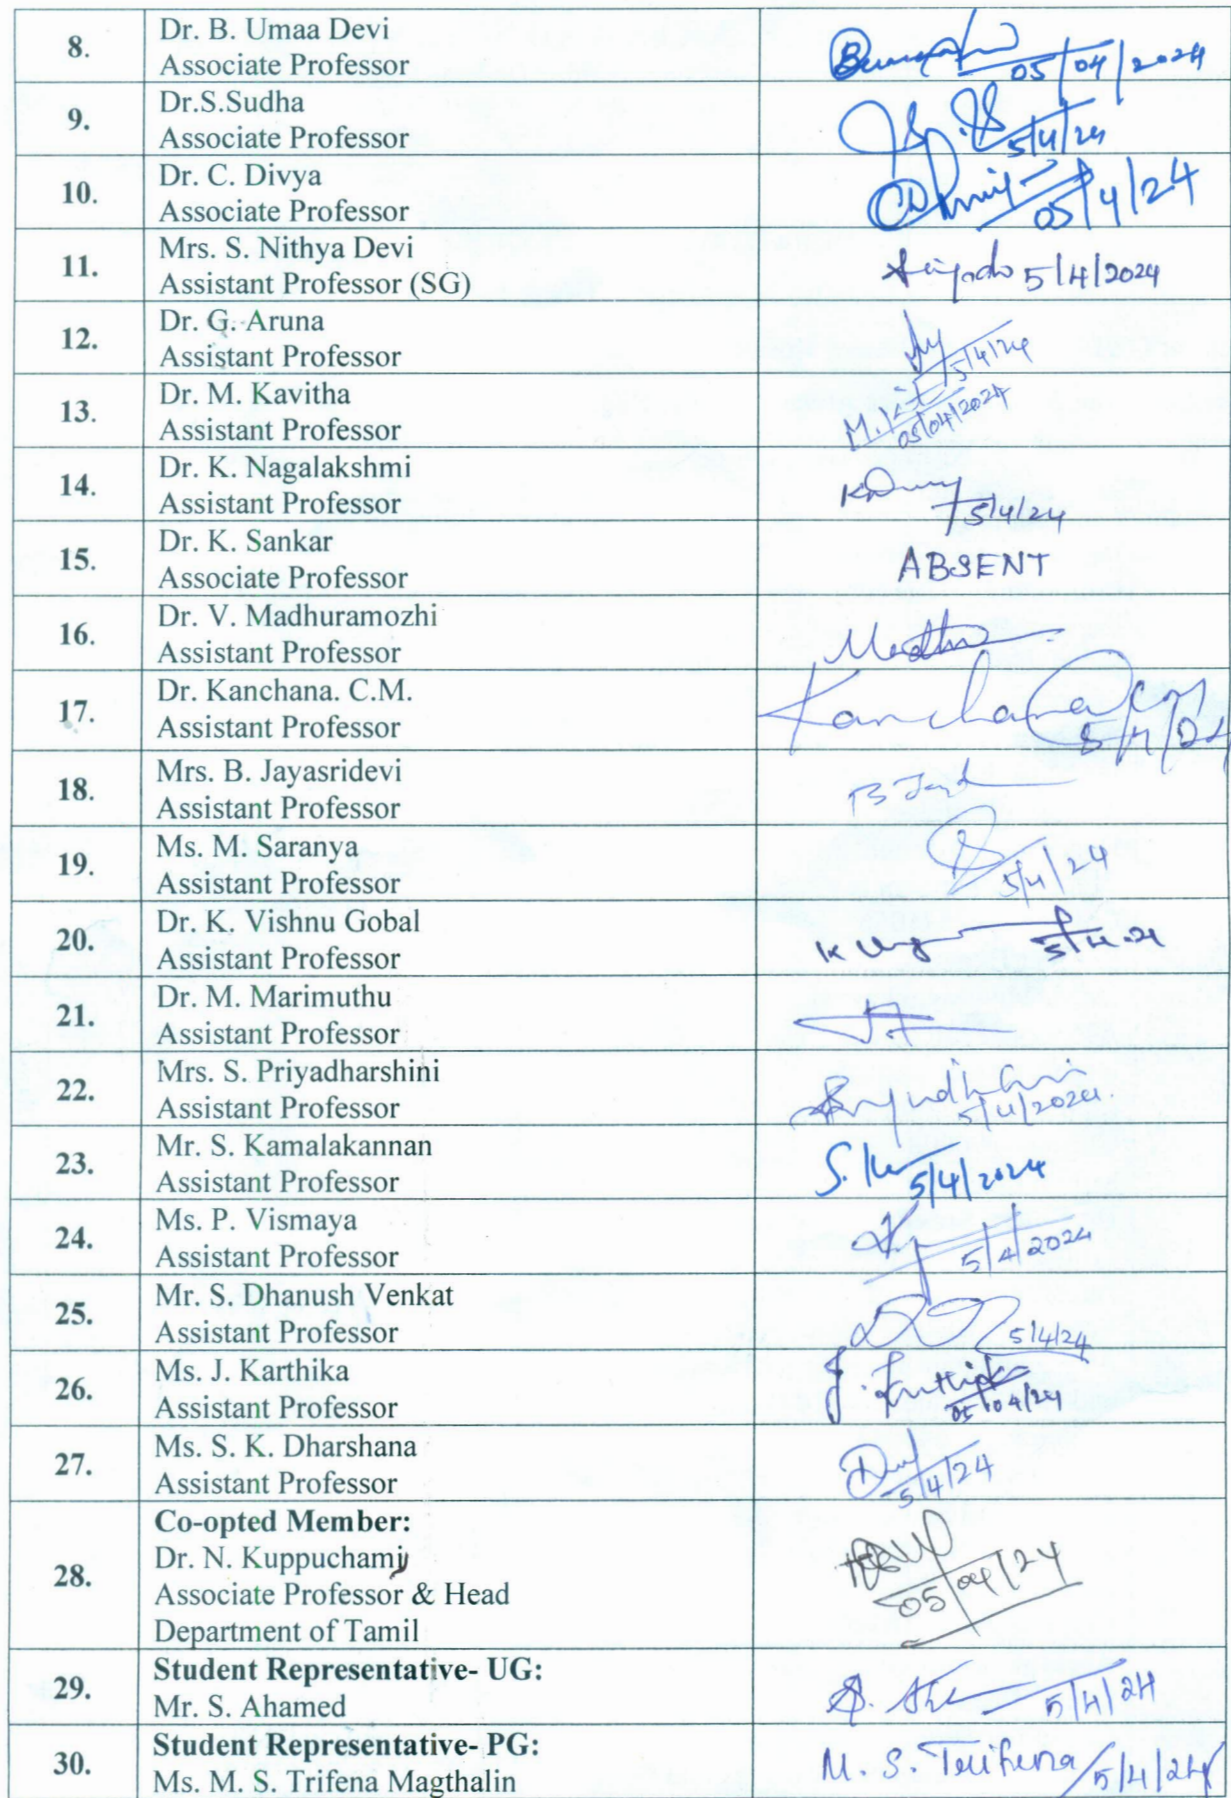 8. Dr. B. Umaa Devi
Associate Professor
05/04/2024
9. Dr.S.Sudha
Associate Professor
5/4/24
10. Dr. C. Divya
Associate Professor
05/4/24
11. Mrs. S. Nithya Devi
Assistant Professor (SG)
5/4/2024
12. Dr. G. Aruna
Assistant Professor
5/4/24
13. Dr. M. Kavitha
Assistant Professor
05/04/2024
14. Dr. K. Nagalakshmi
Assistant Professor
5/4/24
15. Dr. K. Sankar
Associate Professor
ABSENT
16. Dr. V. Madhuramozhi
Assistant Professor
17. Dr. Kanchana. C.M.
Assistant Professor
Kanchana
18. Mrs. B. Jayasridevi
Assistant Professor
19. Ms. M. Saranya
Assistant Professor
5/4/24
20. Dr. K. Vishnu Gobal
Assistant Professor
21. Dr. M. Marimuthu
Assistant Professor
22. Mrs. S. Priyadharshini
Assistant Professor
5/4/2024.
23. Mr. S. Kamalakannan
Assistant Professor
5/4/2024
24. Ms. P. Vismaya
Assistant Professor
5/4/2024
25. Mr. S. Dhanush Venkat
Assistant Professor
5/4/24
26. Ms. J. Karthika
Assistant Professor
05/04/24
27. Ms. S. K. Dharshana
Assistant Professor
5/4/24
28. Co-opted Member:
Dr. N. Kuppuchamy
Associate Professor & Head
Department of Tamil
05/04/24
29. Student Representative- UG:
Mr. S. Ahamed
5/4/24
30. Student Representative- PG:
Ms. M. S. Trifena Magthalin
M. S. Trifena 5/4/24